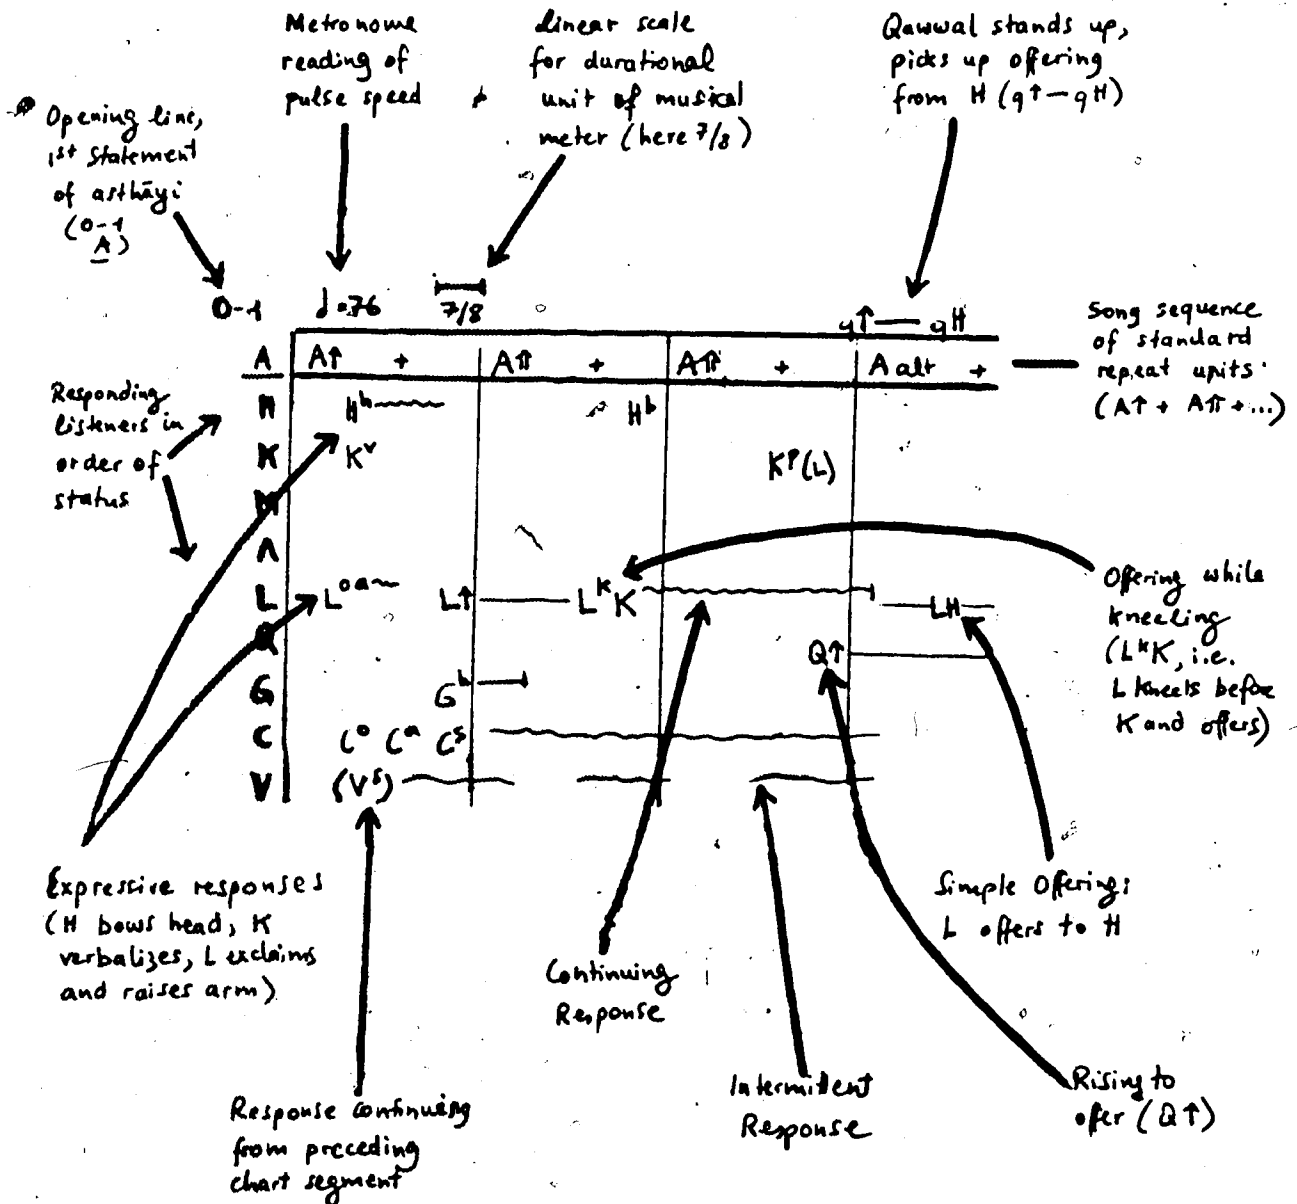 Metronome
reading of
pulse speed
Linear scale
for durational
unit of musical
meter (here 7/8)
Qawwal stands up,
picks up offering
from H (q↑—qH)
Opening line,
1st statement
of asthāyi
(0-1
A)
0-1 ♩=76 7/8 q↑— qH
A A↑ + A⇈ + A⇈ + A alt +
Song sequence
of standard
repeat units
(A↑ + A⇈ +...)
Responding
listeners in
order of
status
H Hʰ Hʰ
K Kᵛ Kᵖ(L)
M
A
L Lᵒᵃ L↑ LᵏK LH
Q Q↑
G Gʰ
C Cᵒ Cᵃ Cˢ
V (Vˢ)
Offering while
kneeling
(LᵏK, i.e.
L kneels before
K and offers)
Expressive responses
(H bows head, K
verbalizes, L exclaims
and raises arm)
Simple Offering:
L offers to H
Continuing
Response
Intermittent
Response
Rising to
offer (Q↑)
Response continuing
from preceding
chart segment